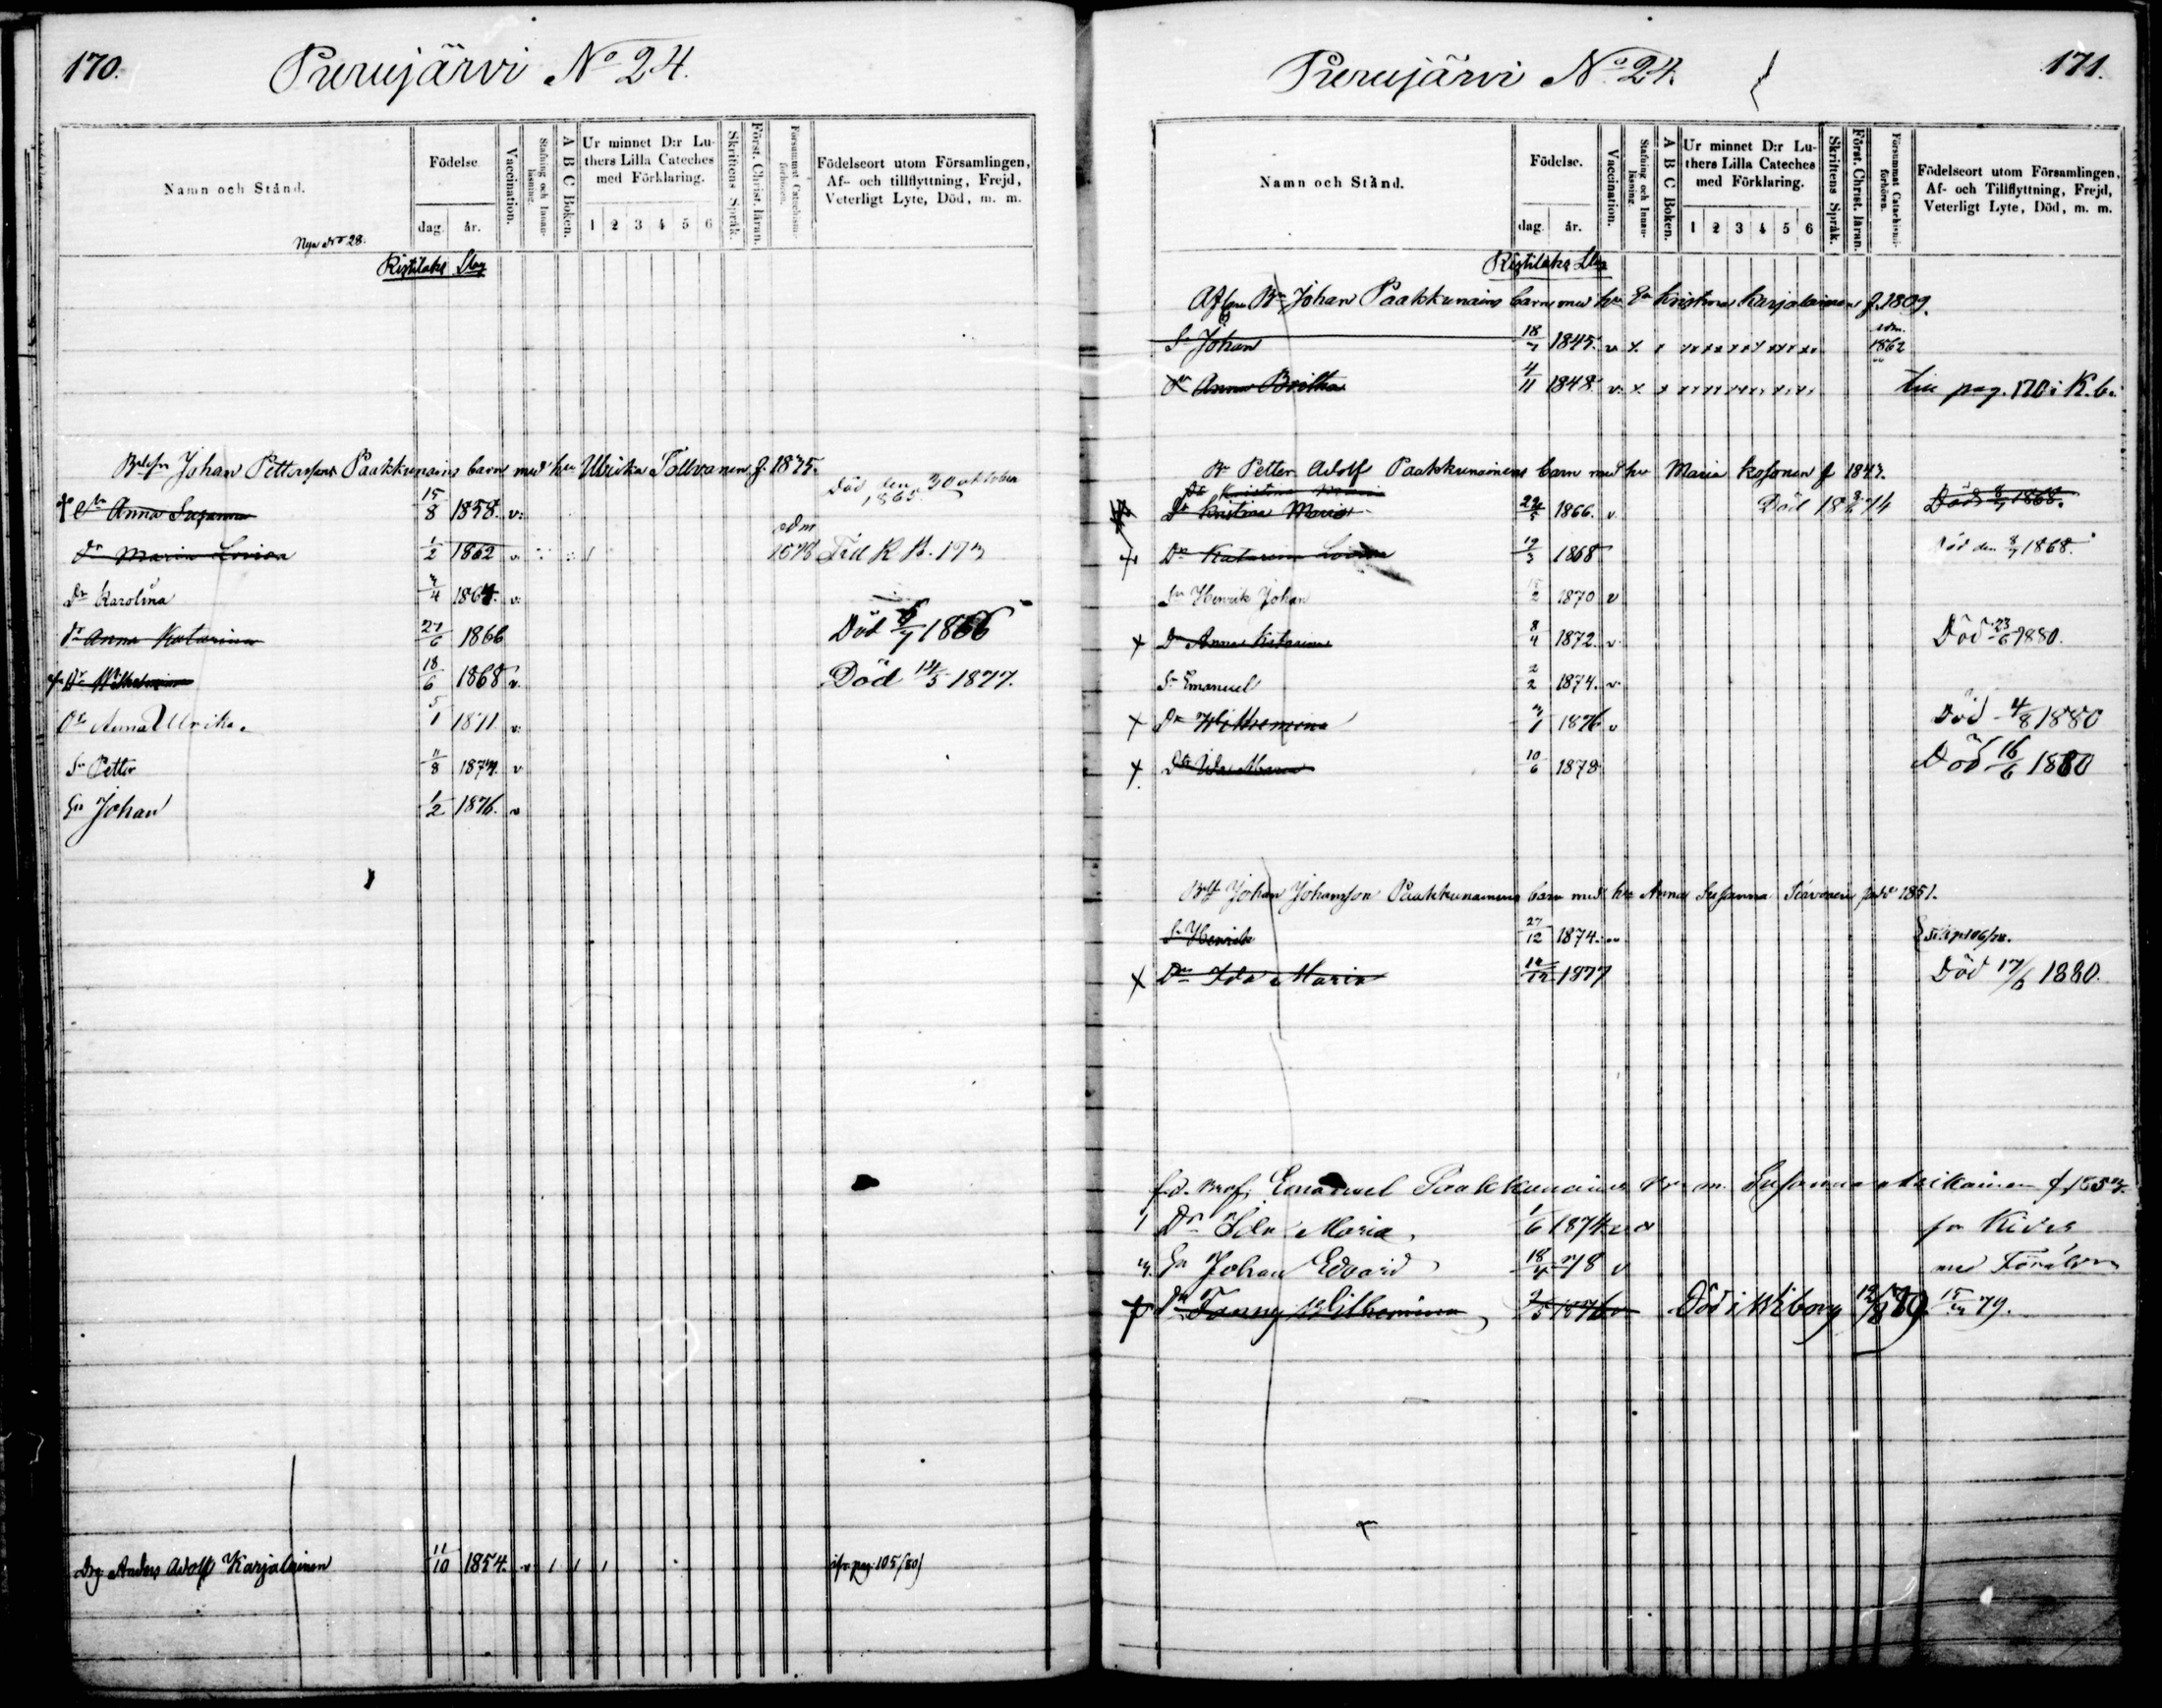 170.
Purujärvi No 24.
Namn och Stånd.
Födelse
dag.
år.
Vaccination.
Stafning och Innan-läsning.
A B C Boken.
Ur minnet D:r Lu-
thers Lilla Cateches
med Förklaring.
1 2 3 4 5 6
Skriftens Språk.
Först. Christ. läran.
Försummat Catechismi-förhören.
Födelseort utom Församlingen,
Af- och tillflyttning, Frejd,
Veterligt Lyte, Död, m. m.
Nya No 28.
Ristilaks Släg
Johan Pettersson Paakkunains barn med hu Ulrika Tollvanen f. 1835.
† Dr Anna Susanna 15/8 1858. v. Död den 30 oktober 1865.
Dr Maria Lovisa 1/2 1862 v. 1 adm 1878 Till K. B. 193
Dr Karolina 3/4 1864. v.
Dr Anna Katarina 27/6 1866 Död 6/7 1866
Dr Wilhelmina 18/6 1868 v. Död 14/5 1877.
Dr Anna Ulrika. 5/1 1871. v.
Sn Petter 11/8 1873. v
Sn Johan 1/2 1876. v
Drg Anders Adolf Karjalainen 11/10 1854. v 1 1 1 ifr. pag. 105/80)
171.
Purujärvi No 24.
Namn och Stånd.
Födelse.
dag.
år.
Vaccination.
Stafning och Innan-läsning.
A B C Boken.
Ur minnet D:r Lu-
thers Lilla Cateches
med Förklaring.
1 2 3 4 5 6
Skriftens Språk.
Först. Christ. läran.
Försummat Catechismi-förhören.
Födelseort utom Församlingen,
Af- och Tillflyttning, Frejd,
Veterligt Lyte, Död, m. m.
Ristilaks Släg
Johan Paakkunains barn med hu Kristina Karjalainen f. 1809.
Sn Johan 18/7 1845. v. x adm. 1862
Dr Anna Britha 4/11 1848. v. x till pag. 170 i K. b.
Br Petter Adolf Paakkunainens barn med hu Maria Kosonen f 1843.
Dr Kristina Maria
Dr Kristina Maria 22/5 1866. v. Död
Dr Katarina Lovisa 19/3 1868 Död den 8/7 1868.
Sn Henrik Johan 15/2 1870 v
x Dr Anna Katarina 8/4 1872. v Död 23/6 1880.
Sn Emanuel 2/2 1874. v
x Dr Wilhemina 1876 v Död 4/8 1880
x Dr Ida Maria 10/6 1878 Död 16/6 1880
Johan Johansson Paakkunainens barn med hu Anna Susanna 1851.
Sn Henrik 27/12 1874.
x Dr Ida Maria 1877 Död 17/6 1880.
Emanuel Paakkunainen m. Susanna
1 Dr Ida Maria 1/6 1874 fr Kides
Sn Johan Edvard 78 v med Föräldrar
† Dr Fanny Wilhemina 1876 Död i Wiborg 15/ 79.